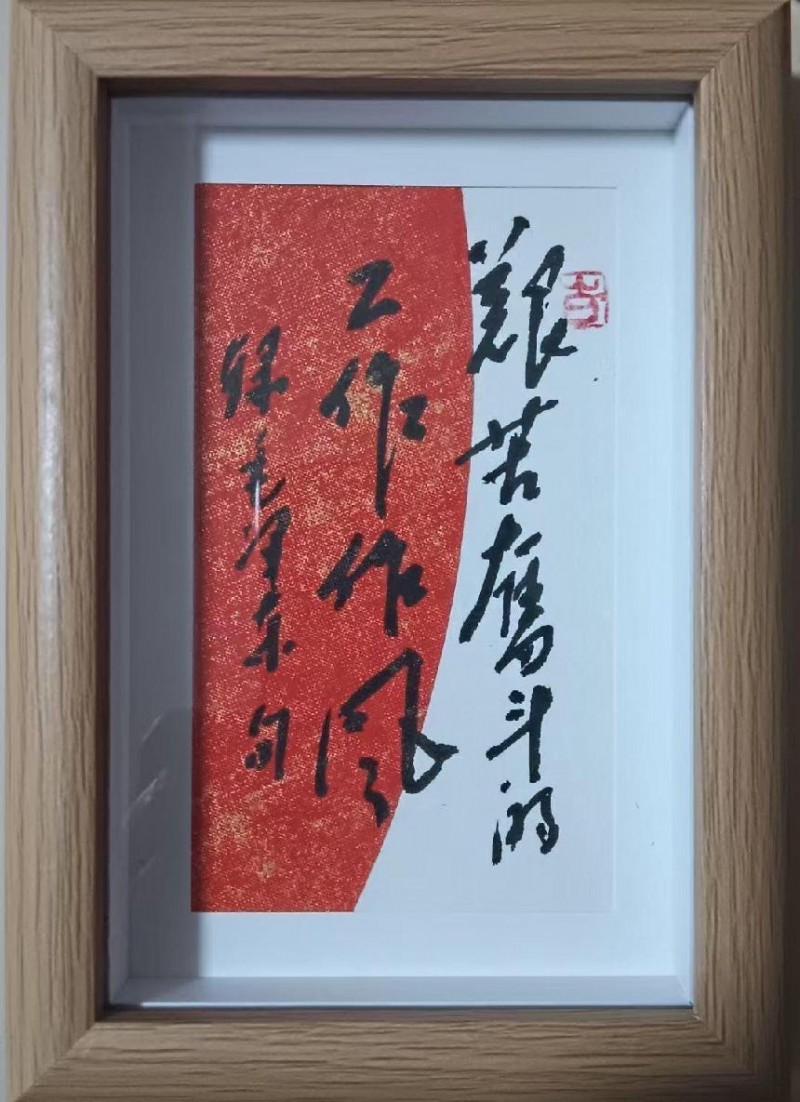 艰苦奋斗的
工作作风
録毛泽东句